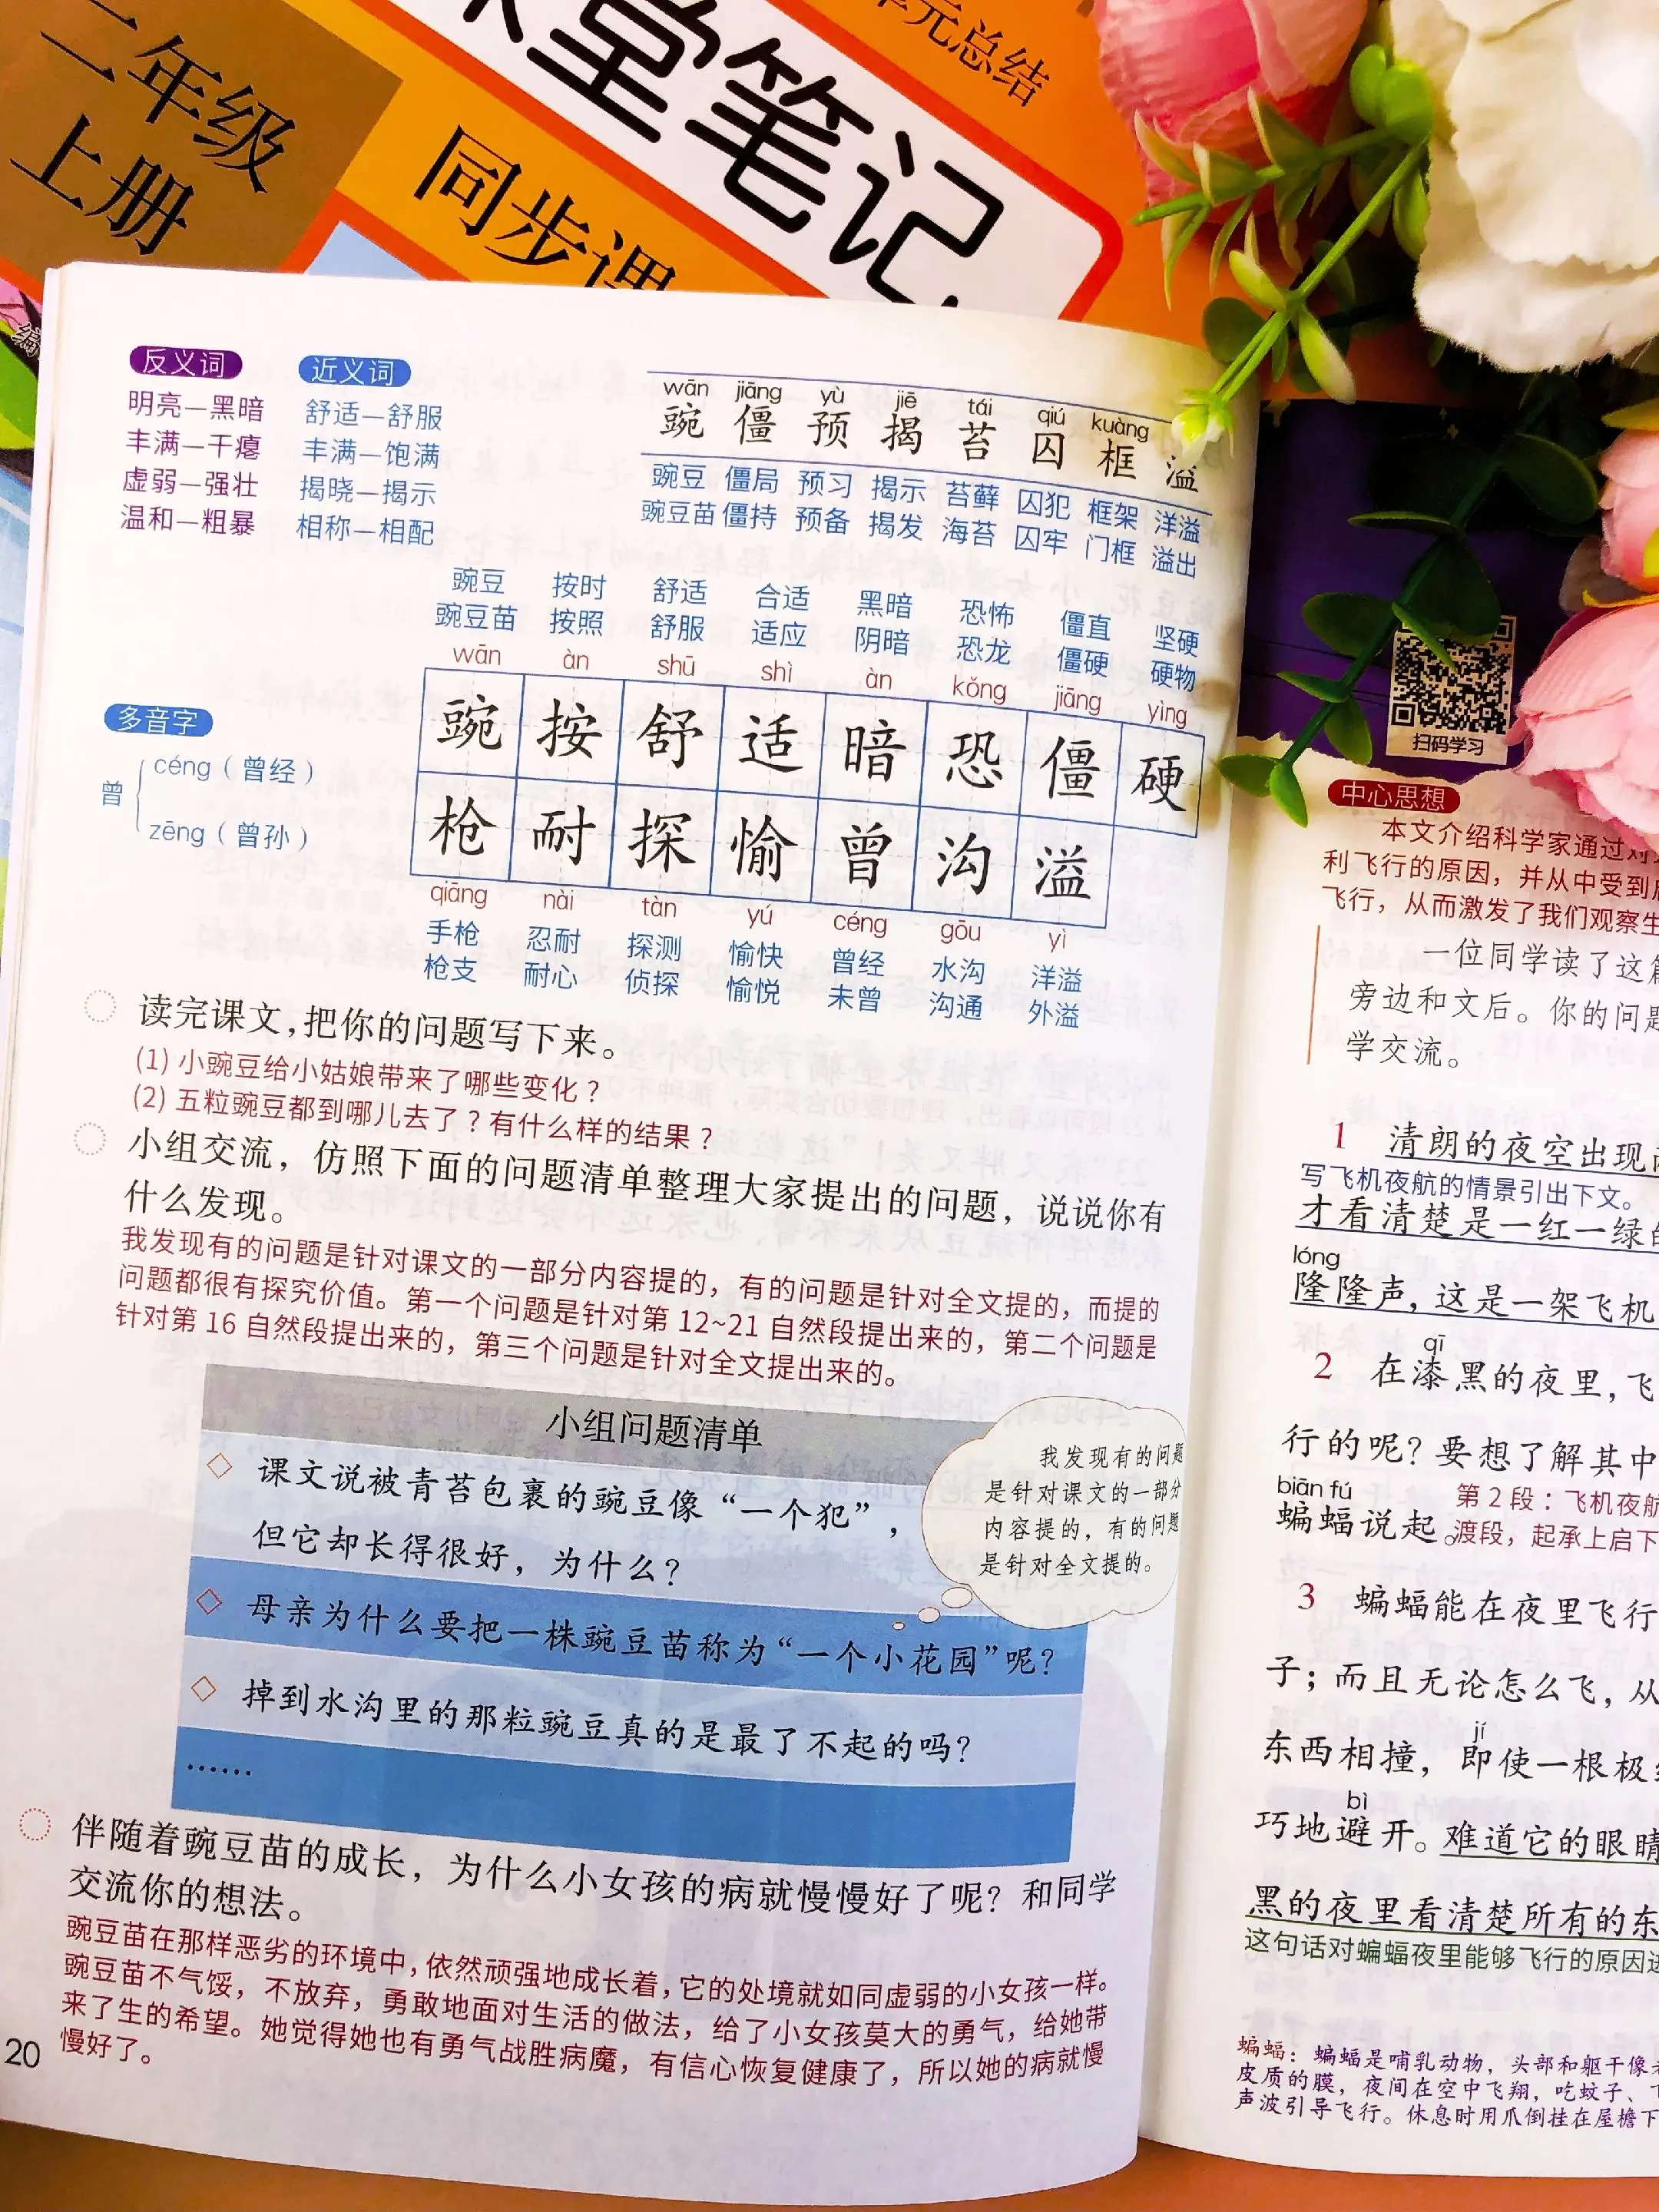 二年级
上册
堂笔记
单元总结
同步课
反义词
明亮—黑暗
丰满—干瘪
虚弱—强壮
温和—粗暴
近义词
舒适—舒服
丰满—饱满
揭晓—揭示
相称—相配
wān jiāng yù jiē tái qiú kuàng
豌 僵 预 揭 苔 囚 框 溢
豌豆 僵局 预习 揭示 苔藓 囚犯 框架 洋溢
豌豆苗 僵持 预备 揭发 海苔 囚牢 门框 溢出
豌豆 按时 舒适 合适 黑暗 恐怖 僵直 坚硬
豌豆苗 按照 舒服 适应 阴暗 恐龙 僵硬 硬物
wān àn shū shì àn kǒng jiāng yìng
豌 按 舒 适 暗 恐 僵 硬
枪 耐 探 愉 曾 沟 溢
qiāng nài tàn yú céng gōu yì
手枪 忍耐 探测 愉快 曾经 水沟 洋溢
枪支 耐心 侦探 愉悦 未曾 沟通 外溢
多音字
曾
céng（曾经）
zēng（曾孙）
读完课文，把你的问题写下来。
(1) 小豌豆给小姑娘带来了哪些变化？
(2) 五粒豌豆都到哪儿去了？有什么样的结果？
小组交流，仿照下面的问题清单整理大家提出的问题，说说你有
什么发现。
我发现有的问题是针对课文的一部分内容提的，有的问题是针对全文提的，而提的
问题都很有探究价值。第一个问题是针对第 12~21 自然段提出来的，第二个问题是
针对第 16 自然段提出来的，第三个问题是针对全文提出来的。
小组问题清单
课文说被青苔包裹的豌豆像“一个犯”，
但它却长得很好，为什么？
母亲为什么要把一株豌豆苗称为“一个小花园”呢？
掉到水沟里的那粒豌豆真的是最了不起的吗？
……
我发现有的问题
是针对课文的一部分
内容提的，有的问题
是针对全文提的。
伴随着豌豆苗的成长，为什么小女孩的病就慢慢好了呢？和同学
交流你的想法。
豌豆苗在那样恶劣的环境中，依然顽强地成长着，它的处境就如同虚弱的小女孩一样。
豌豆苗不气馁，不放弃，勇敢地面对生活的做法，给了小女孩莫大的勇气，给她带
来了生的希望。她觉得她也有勇气战胜病魔，有信心恢复健康了，所以她的病就慢
慢好了。
20
扫码学习
中心思想
本文介绍科学家通过对
利飞行的原因，并从中受到
飞行，从而激发了我们观察生
一位同学读了这篇
旁边和文后。你的问题
学交流。
1 清朗的夜空出现
写飞机夜航的情景引出下文。
才看清楚是一红一绿的
lóng
隆隆声，这是一架飞机
qī
2 在漆黑的夜里，飞
行的呢？要想了解其中
biān fú
蝙蝠说起。
第 2 段：飞机夜航
渡段，起承上启下
3 蝙蝠能在夜里飞行
子；而且无论怎么飞，从
jí
东西相撞，即使一根极
bì
巧地避开。难道它的眼睛
黑的夜里看清楚所有的东
这句话对蝙蝠夜里能够飞行的原因
蝙蝠：蝙蝠是哺乳动物，头部和躯干像
皮质的膜，夜间在空中飞翔，吃蚊子、
声波引导飞行。休息时用爪倒挂在屋檐下